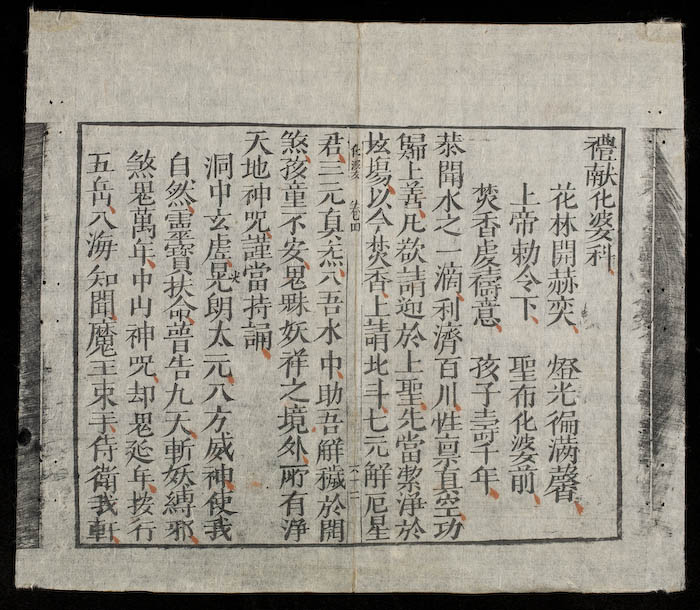 禮献化婆科
花林開赫奕 燈光徧滿馨
上帝勅令下 聖布化婆前
焚香虔禱意 孩子壽千年
恭聞水之一滴利濟百川性禀真空功
歸上善凡欲請迎於上聖先當潔淨於
坛塲以今焚香上請北斗七元解厄星
化婆 卷四
六十二
君三元真炁入吾水中助吾觧穢於閞
煞孩童不安鬼眛妖祥之境外所有淨
天地神咒謹當持誦
洞中玄虛晃朗太元八方威神使我
自然靈寶扶命普告九天斬妖縛邪
煞鬼萬年中山神咒却鬼延年按行
五岳八海知聞魔王束手侍衛我軒